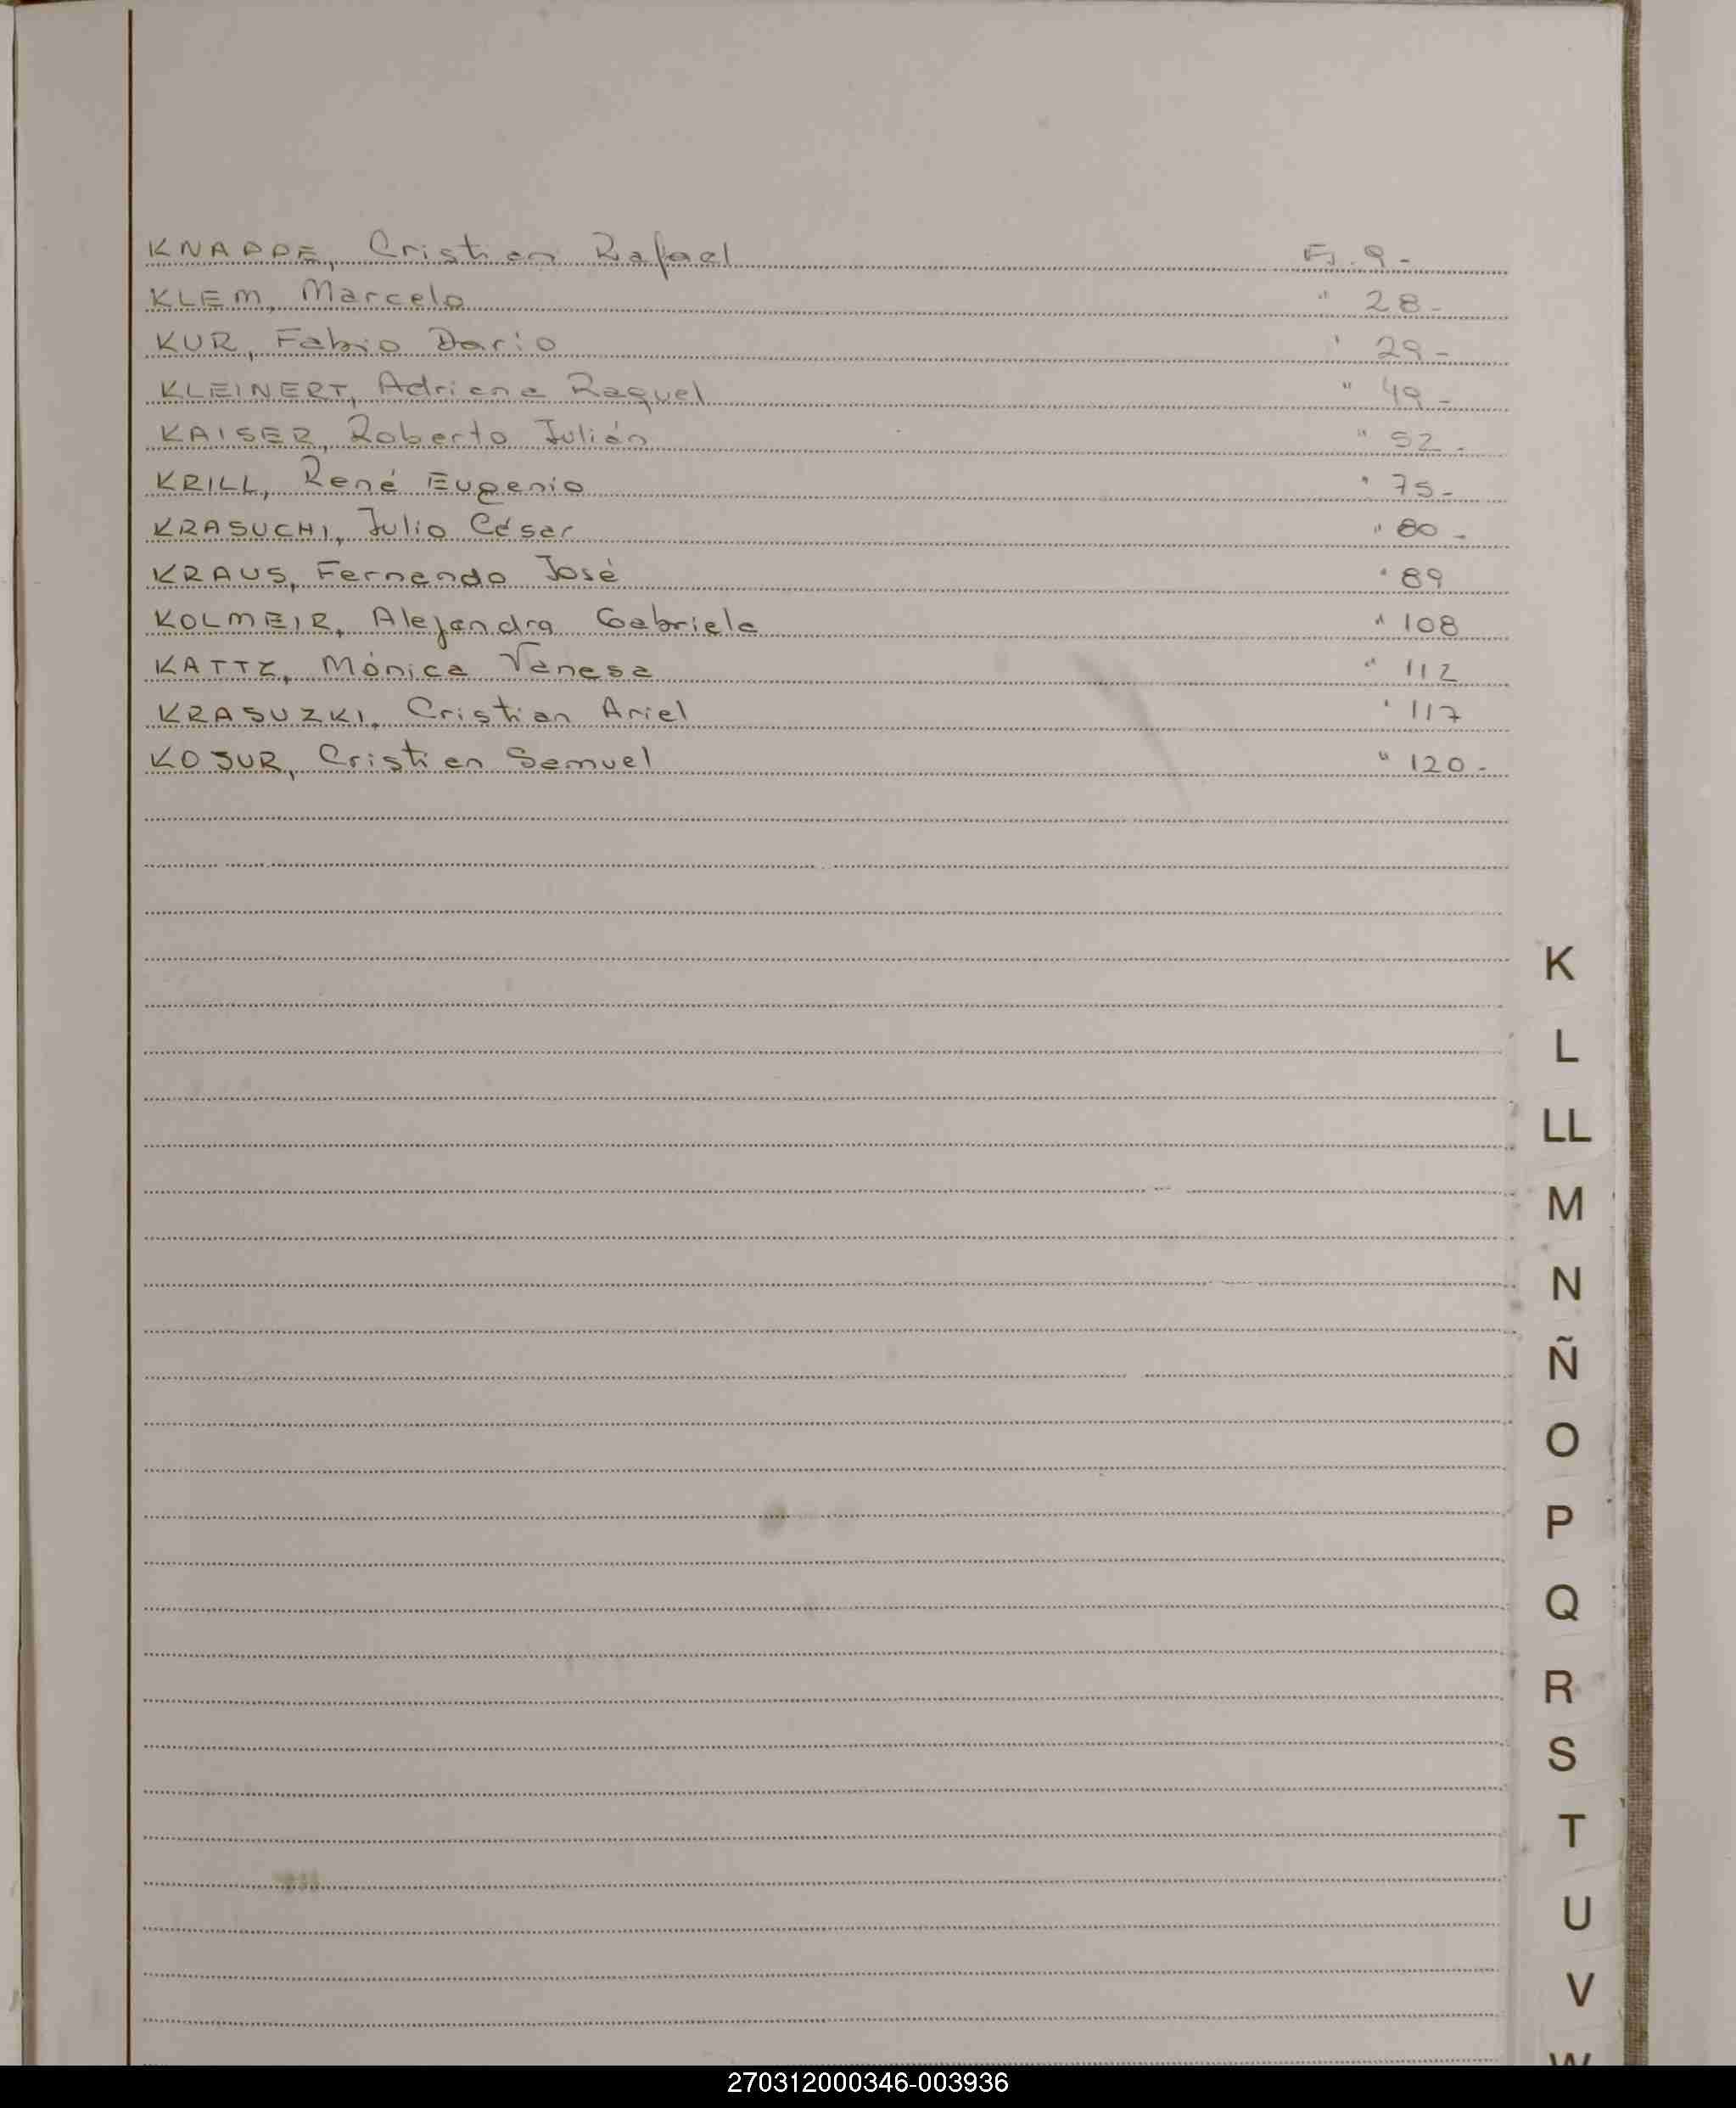 KNAPPE, Cristian Rafael Fj. 9-
KLEM, Marcelo " 28-
KUR, Fabio Darío " 29-
KLEINERT, Adriana Raquel " 49-
KAISER, Roberto Julián " 52-
KRILL, René Eugenio " 75-
KRASUCHI, Julio César " 80-
KRAUS, Fernando José " 89
KOLMEIR, Alejandra Gabriela " 108
KATTZ, Mónica Vanesa " 112
KRASUZKI, Cristian Ariel " 117
KOSUR, Cristian Samuel " 120-
K
L
LL
M
N
Ñ
O
P
Q
R
S
T
U
V
W
270312000346-003936